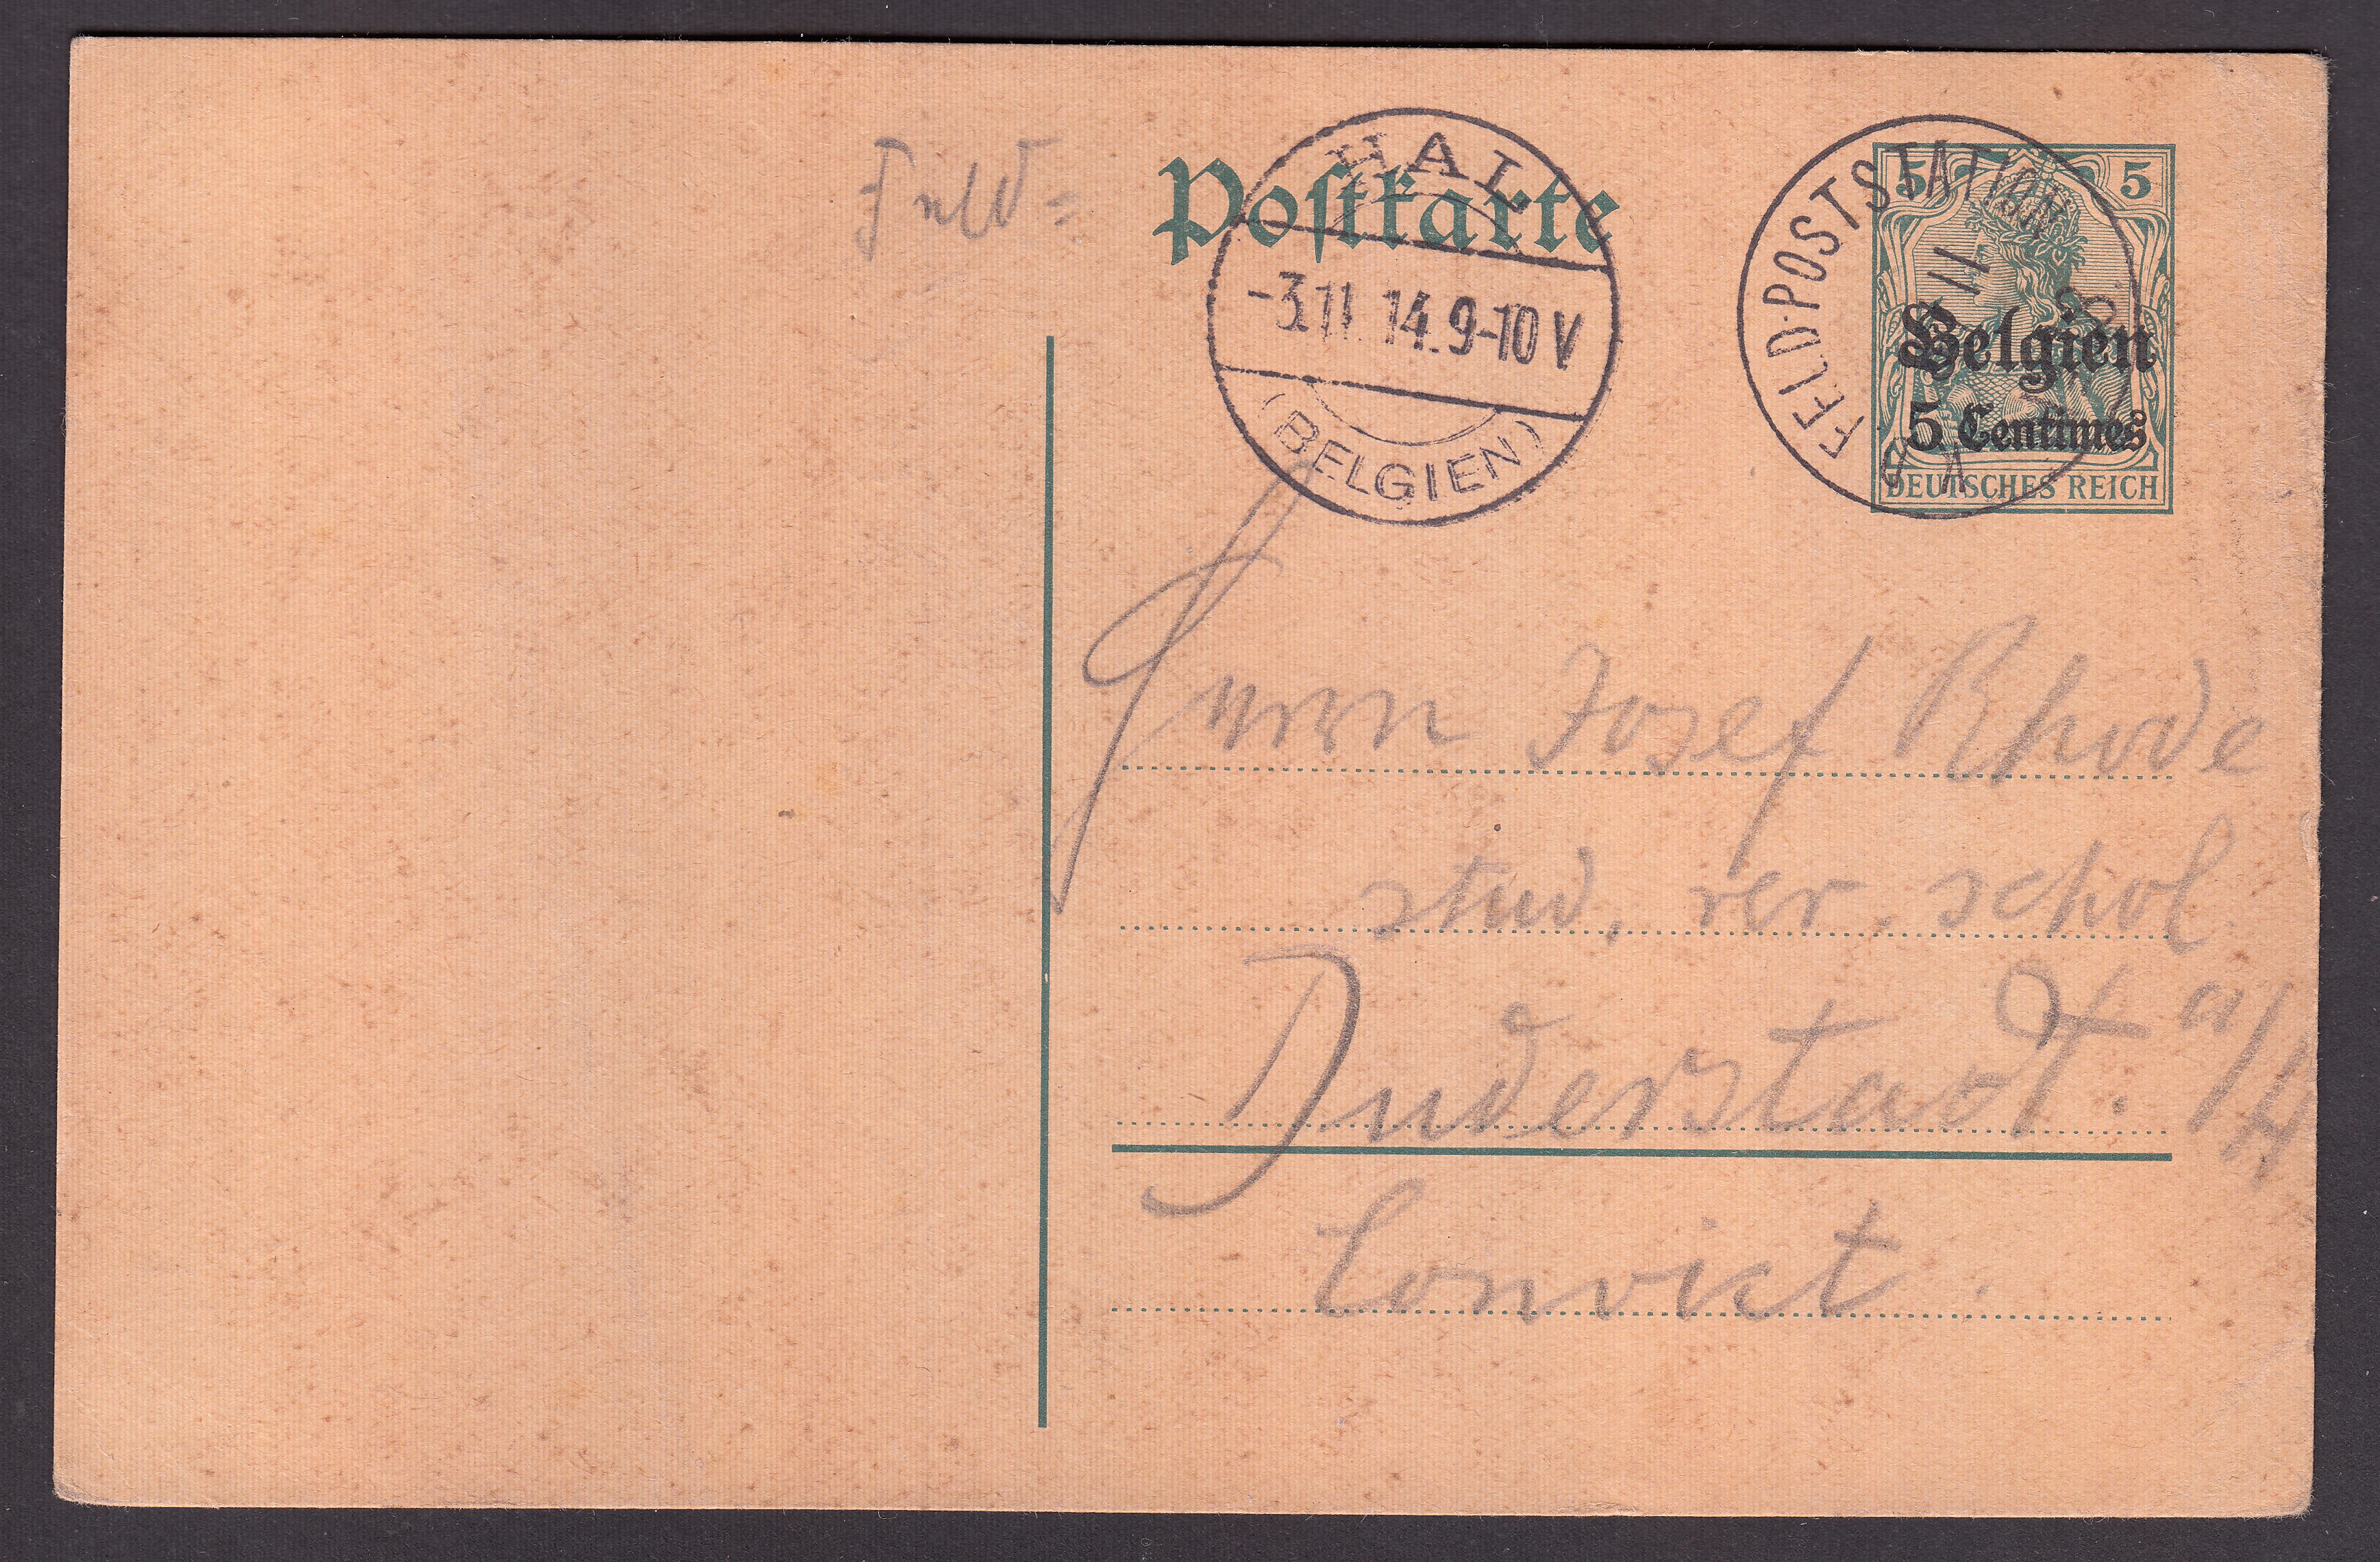 Feld= Postkarte
HAL
-3.11.14.9-10V
(BELGIEN)
FELD-POSTSTATION
11
5 5
Belgien
5 Centimes
DEUTSCHES REICH
Herrn Josef Rhode
stud. rer. schol.
Duderstadt. a/H
Convict.